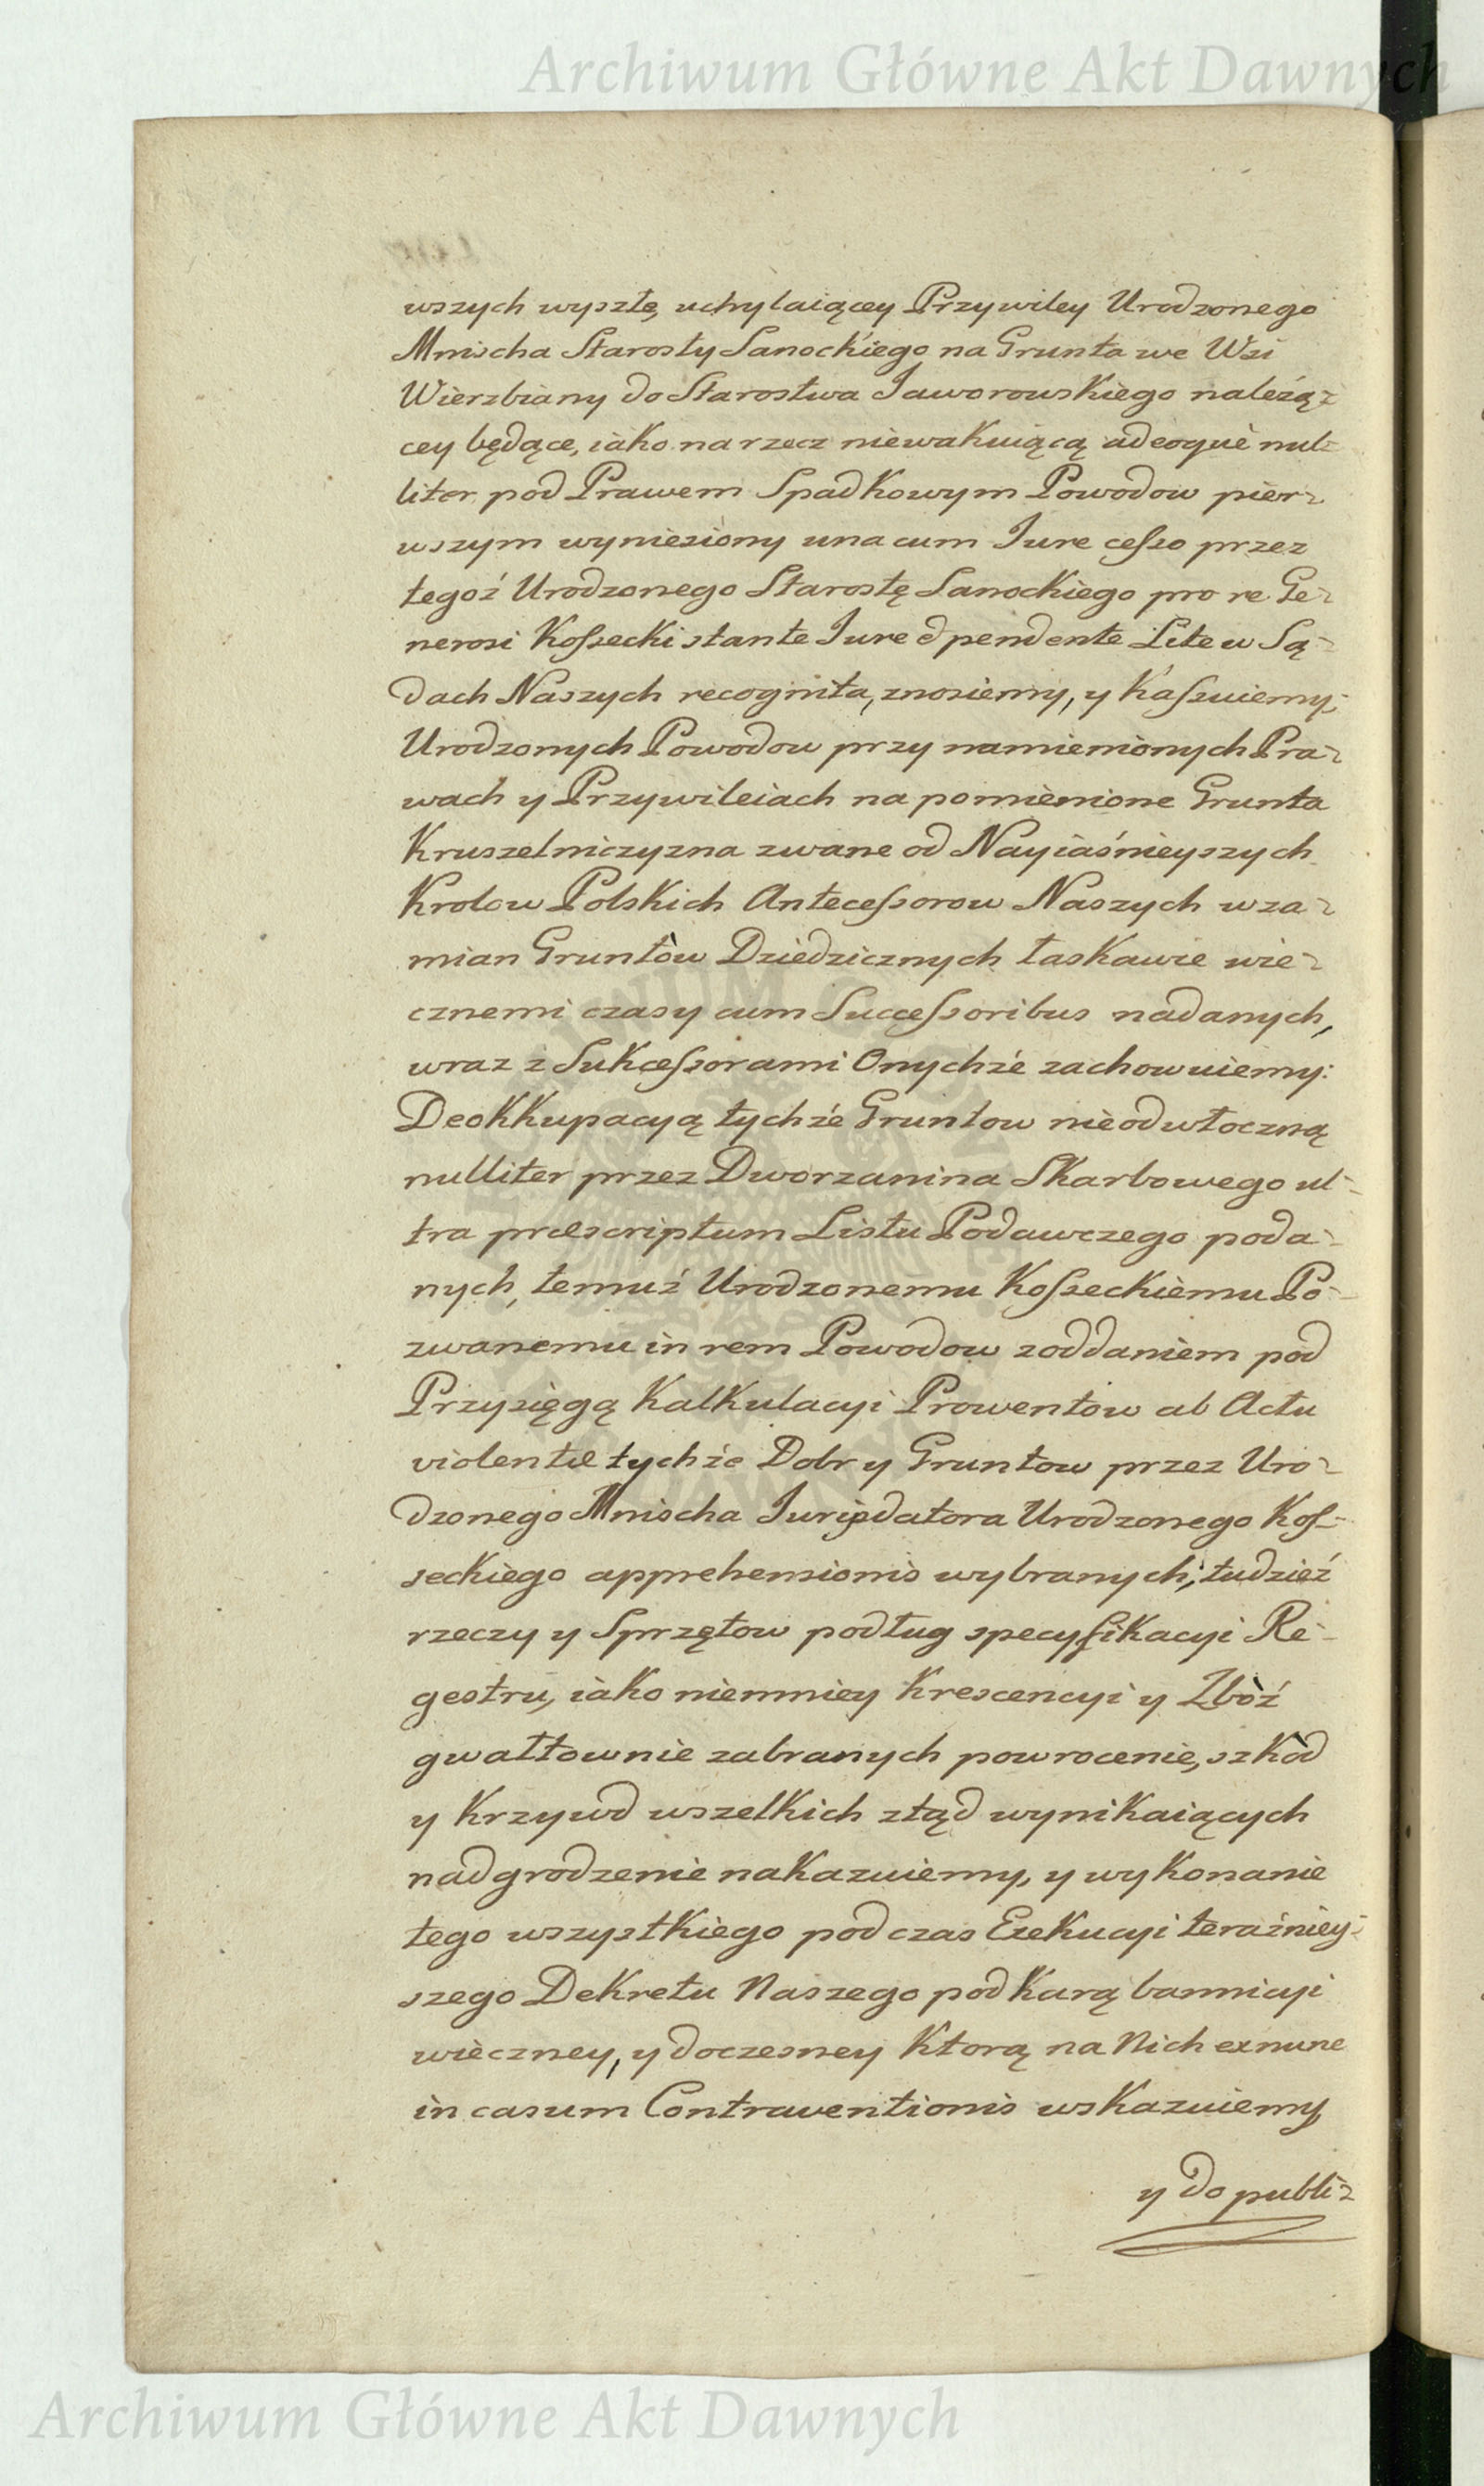 Archiwum Główne Akt Dawnych
wszych wyszłe, uchylaiącey Przywiley Urodzonego
Mnischa Starosty Sanockiego na Grunta we Wsi
Wierzbiany do Starostwa Jaworowskiego należą-
cey będące, iako na rzecz niewakuiącą adeoque nul-
liter pod Prawem Spadkowym Powodow pier-
wszym wyniesiony una cum Jure cesso przez
tegoż Urodzonego Starostę Sanockiego pro re Ge-
nerosi Kossecki stante Jure & pendente Lite w Są-
dach Naszych recognita, znosiemy, y Kassuiemy;
Urodzonych Powodow przy namienionych Pra-
wach y Przywileiach na pomienione Grunta
Kruszelniczyzna zwane od Nayiaśnieyszych
Krolow Polskich Antecessorow Naszych w za-
mian Gruntòw Dziedzicznych łaskawie wie-
cznemi czasy cum Successoribus nadanych,
wraz z Sukcessorami Onychże zachowuiemy:
Deokkupacyą tychże Gruntow nieodwłoczną
nulliter przez Dworzanina Skarbowego ul-
tra præscriptum Listu Podawczego poda-
nych, temuż Urodzonemu Kosseckiemu Po-
zwanemu in rem Powodow z oddaniem pod
Przysięgą Kalkulacyi Prowentow ab Actu
violentæ tychże Dobr y Gruntow przez Uro-
dzonego Mnischa Jurisdatora Urodzonego Kos-
seckiego apprehensionis wybranych; tudzież
rzeczy y Sprzętow podług specyfikacyi Re-
gestru, iako niemniey Krescencyi y Zbòż
gwałtownie zabranych powrocenie, szkòd
y Krzywd wszelkich ztąd wynikaiących
nadgrodzenie nakazuiemy, y wykonanie
tego wszystkiego podczas Exekucyi teraźniey-
szego Dekretu Naszego pod Karą bannicyi
wieczney, y doczesney Ktorą na Nich ex nunc
in casum Contraventionis wskazuiemy,
y do publi-
Archiwum Główne Akt Dawnych